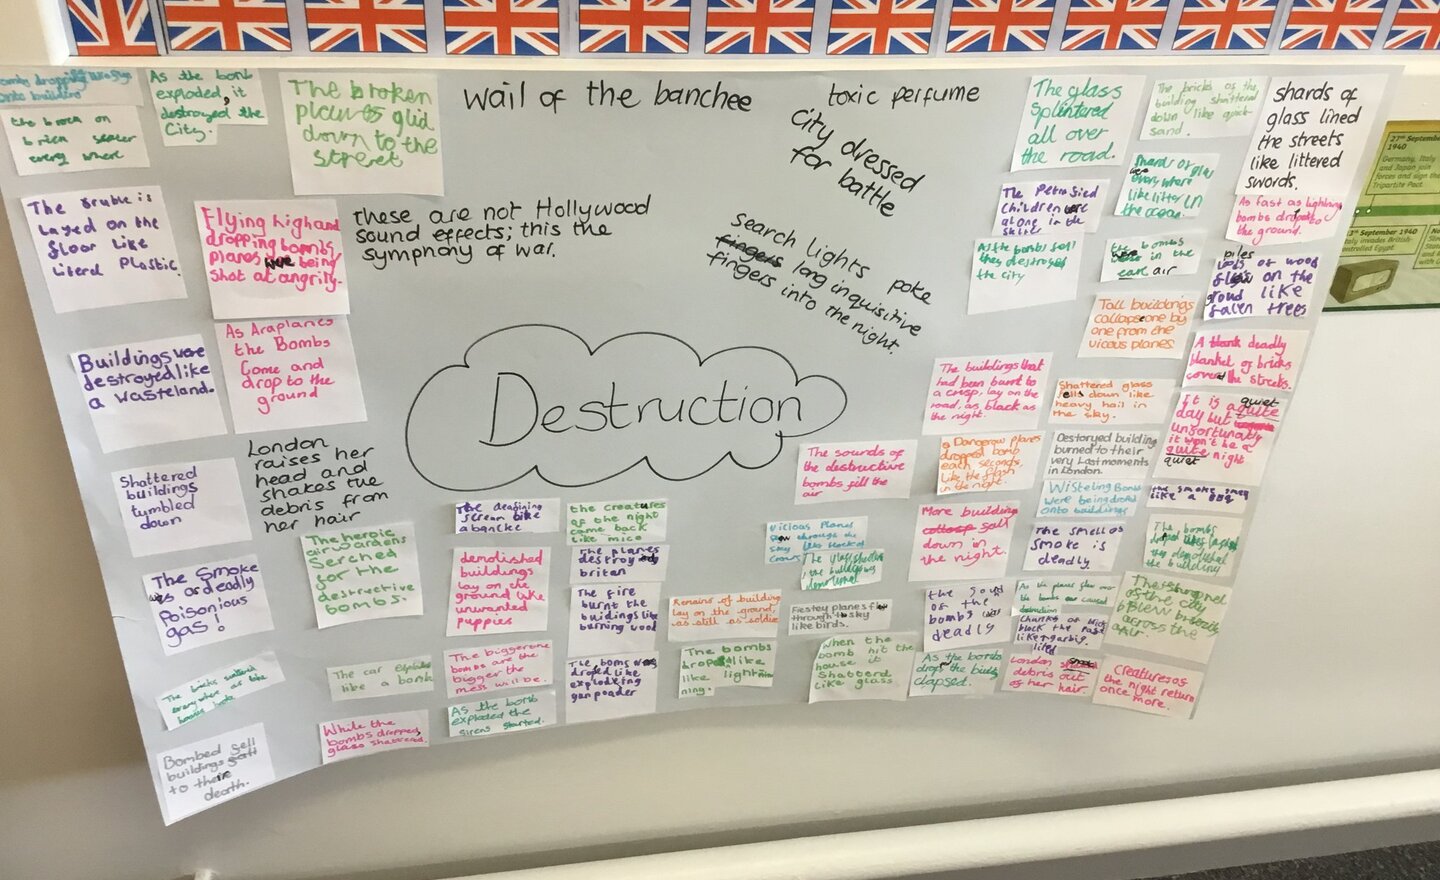 As the bomb
exploded, it
destroyed the
City.
The broken
glid
down to the
street
wail of the banchee
toxic perfume
city dressed
for battle
The glass
splintered
all over
the road.
The bricks of the
building shattered
down like quick
sand.
shards of
glass lined
the streets
like littered
swords.
every where
The
is
layed on the
floor like
literal plastic.
Flying high and
dropping bombs,
planes were being
shot at angrily.
these are not Hollywood
sound effects; this the
symphony of war.
search lights poke
fingers long inquisitive
fingers into the night.
The Petrosied
children were
alone in the
As the bombs fell
they destroyed
the city
every where
like litter in
the ocean.
As fast as
bombs
to
the ground.
the bombs
were in the
air
piles
of wood
on the
like
falen trees
As Araplanes
the Bombs
Come and
drop to the
ground
Buildings were
destroyed like
a wasteland.
Tall buildings
collapse one by
one from the
vicous planes
A blank deadly
blanket of bricks
covered the streets.
Destruction
The buildings that
had been burnt to
a crisp, lay on the
road, as black as
the night.
Shattered glass
down like
heavy hail in
the sky.
It is a quite
quiet
day but
unfortunatly
it won't be a
quite night
quiet
London
raises her
head and
shakes the
debris from
her hair
Shattered
buildings
tumbled
down
The sounds of
the destructive
bombs fill the
air
a Dangerow planes
dropped bomb
each seconds,
Like the flash
in the night.
Destoryed building
burned to their
very Last moments
in London.
Wisteling Bombs
were being
onto buildings
the smoke
like a
the deafining
scream like
abancke
the creatures
of the night
came back
like mice
The heroic
airwardens
Serched
for the
destructive
bombs.
Vicious Planes
through the
sky
More building
collaosp sell
down in
the night.
The smell of
smoke is
deadly
The bombs
they demolished
the buildings
The smoke
was as deadly
Poisonious
gas!
demolished
buildings
lay on the
ground like
unwanted
puppies
The planes
britan
The fire
burnt the
buildings like
burning wood
Remains of building
lay on the ground,
as still as soldie
planes
through to sky
like birds.
the
of the
bombs was
deadly
The
of the city
across the
air
The car
like a bomb
The biggerune
bombs are the
bigger the
mess will be.
The
droped like
exploding
gun powder
The bombs
like
like lightnin
ning.
When the
bomb hit the
house it
Shatterd
like glass
As the bombs
drop the
clapsed.
London
debris out
of her hair.
Creatures of
the night return
once more.
While the
bombs dropped,
glass shattered.
As the bomb
exploded the
sirens started.
Bombed sell
buildings
to their
death.
27th September
1940
Germany, Italy
and Japan join
forces and sign the
Tripartite Pact.
September 1940
invades British-
Egypt